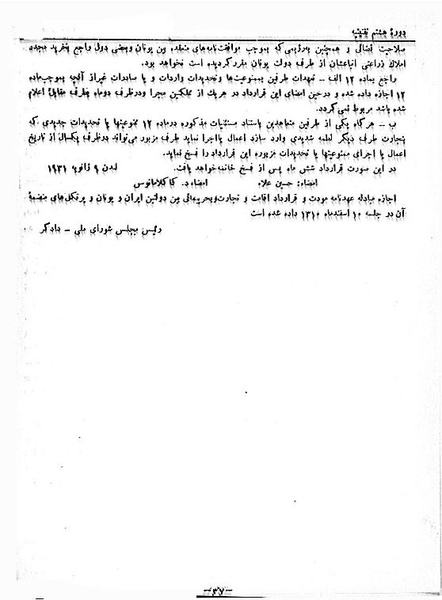 دورهٔ هشتم تقنینیه
صلاحیت قضائی و همچنین به رژیمی که بموجب موافقت‌نامه‌های منعقده بین یونان وبعضی دول راجع بخرید مجدد
املاک زراعتی اتباعشان از طرف دولت یونان مقرر گردیده است نخواهد بود.
راجع بماده ۱۲ الف – تعهدات طرفین بممنوعیتها وتحدیدات واردات و یا صادرات غیر از آنچه بموجب ماده
۱۲ اجازه داده شده و در حین امضای این قرارداد در هریک از مملکتین مجرا و در ظرف دوماه بطرف مقابل اعلام
شده باشد مربوط نمی‌گردد.
ب – هرگاه یکی از طرفین متعاهدین باستناد مستثنیات مذکوره درماده ۱۲ ممنوعیتها یا تحدیدات جدیدی که
بتجارت طرف دیگر لطمه شدیدی وارد سازد اعمال یا اجرا نماید طرف مزبور می‌تواند در ظرف یکسال از تاریخ
اعمال یا اجرای ممنوعیتها یا تحدیدات مزبوره این قرارداد را فسخ نماید.
در این صورت قرارداد شش ماه پس از فسخ خاتمه خواهد یافت. لندن ۹ ژانویه ۱۹۳۱
امضاء: حسین علاء امضاء د. کاکلامانوس
اجازه مبادله عهدنامه مودت و قرارداد اقامت و تجارت و بحرپیمائی بین دولتین ایران و یونان و پرتکل‌های منضمهٔ
آن در جلسه ۱۰ اسفندماه ۱۳۱۰ داده شده است
رئیس مجلس شورای ملی – دادگر